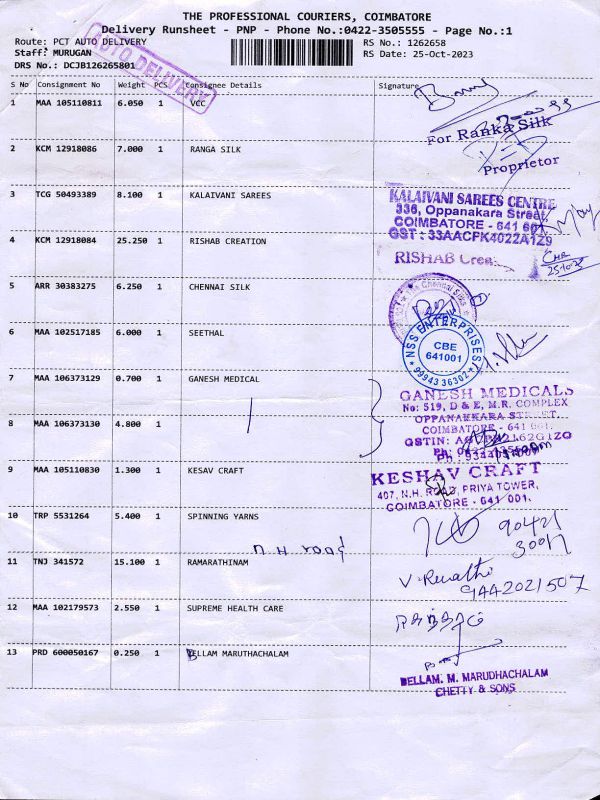 THE PROFESSIONAL COURIERS, COIMBATORE
Delivery Runsheet - PNP - Phone No.:0422-3505555 - Page No.:1
Route: PCT AUTO DELIVERY
RS No.: 1262658
Staff: MURUGAN
RS Date: 25-Oct-2023
DRS No.: DCJB126265801
AUTO DELIVERY
S No Consignment No Weight PCS Consignee Details Signature
1 MAA 105110811 6.050 1 VCC
For Ranka Silk
2 KCM 12918086 7.000 1 RANGA SILK
Proprietor
3 TCG 50493389 8.100 1 KALAIVANI SAREES
KALAIVANI SAREES CENTRE
336, Oppanakara Street,
COIMBATORE - 641 001
GST : 33AACFK4022A1Z9
4 KCM 12918084 25.250 1 RISHAB CREATION
RISHAB Crea
25-10-23
5 ARR 30383275 6.250 1 CHENNAI SILK
The Chennai Silks
6 MAA 102517185 6.000 1 SEETHAL
NSS ENTERPRISES
CBE
641001
9994336302
7 MAA 106373129 0.700 1 GANESH MEDICAL
GANESH MEDICALS
No: 519, D & E, M.R. COMPLEX
OPPANAKKARA STREET,
COIMBATORE - 641 001.
GSTIN:
8 MAA 106373130 4.800 1
9 MAA 105110830 1.300 1 KESAV CRAFT
KESHAV CRAFT
407, N.H. ROAD, PRIYA TOWER,
COIMBATORE - 641 001.
10 TRP 5531264 5.400 1 SPINNING YARNS
90421
30017
N.H. road
11 TNJ 341572 15.100 1 RAMARATHINAM
V. Revathi
9442021507
12 MAA 102179573 2.550 1 SUPREME HEALTH CARE
13 PRD 600050167 0.250 1 BELLAM MARUTHACHALAM
BELLAM. M. MARUDHACHALAM
CHETTY & SONS